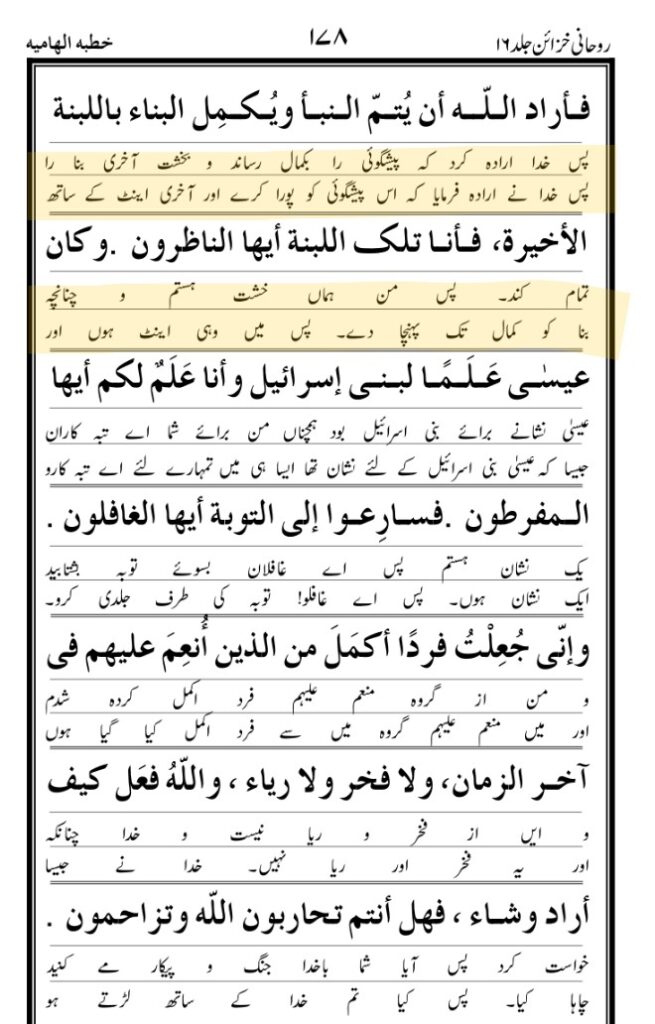 روحانی خزائن جلد ۱۶ ۱۷۸ خطبه الهامیه
فـأراد الـلّــه أن يُتـمّ الـنبـأ ويُـكـمِـل البناء باللبنة
پس خدا ارادہ کرد کہ پیشگوئی را بکمال رساند و بخشت آخری بنا را
پس خدا نے ارادہ فرمایا کہ اس پیشگوئی کو پورا کرے اور آخری اینٹ کے ساتھ
الأخيرة، فـأنـا تلک اللبنة أيها الناظرون .وكان
تمام کند۔ پس من ہماں خشت ہستم و چنانچہ
بنا کو کمال تک پہنچا دے۔ پس میں وہی اینٹ ہوں اور
عيسٰـى عَـلَـمًـا لبـنـى إسرائيل وأنا عَلَمٌ لكم أيها
عیسیٰ نشانے برائے بنی اسرائیل بود ہمچناں من برائے شما اے تبہ کاران
جیسا کہ عیسیٰ بنی اسرائیل کے لئے نشان تھا ایسا ہی میں تمہارے لئے اے تبہ کارو
الـمفرطون .فسـارِعـوا إلى التوبة أيها الغافلون .
یک نشان ہستم پس اے غافلان بسوئے توبہ بشتابید
ایک نشان ہوں۔ پس اے غافلو! توبہ کی طرف جلدی کرو۔
وإنّى جُعِلْتُ فردًا أكمَلَ من الذين أُنعِمَ عليهم فى
و من از گروہ منعم علیہم فرد اکمل کردہ شدم
اور میں منعم علیہم گروہ میں سے فرد اکمل کیا گیا ہوں
آخـر الزمان، ولا فخر ولا رياء ، واللّهُ فعَل كيف
و ایں از فخر و ریا نیست و خدا چنانکہ
اور یہ فخر اور ریا نہیں۔ خدا نے جیسا
أراد وشـاء ، فهل أنتم تـحـاربون اللّه وتزاحمون .
خواست کرد پس آیا شما باخدا جنگ و پیکار مے کنید
چاہا کیا۔ پس کیا تم خدا کے ساتھ لڑتے ہو